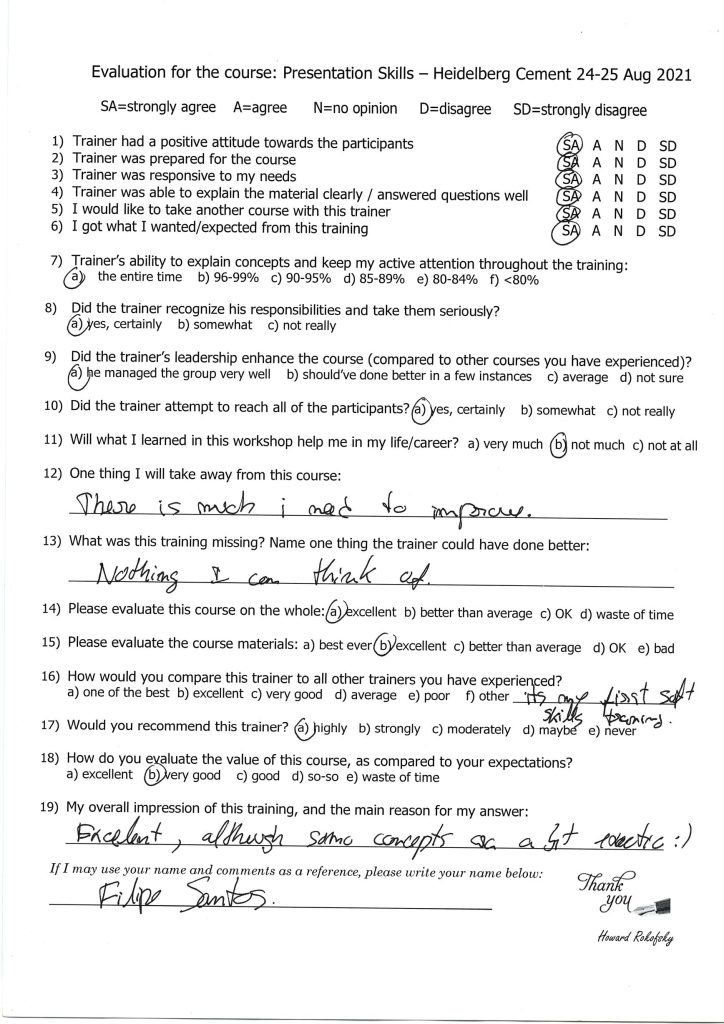 Evaluation for the course: Presentation Skills – Heidelberg Cement 24-25 Aug 2021
SA=strongly agree A=agree N=no opinion D=disagree SD=strongly disagree
1) Trainer had a positive attitude towards the participants SA A N D SD
2) Trainer was prepared for the course SA A N D SD
3) Trainer was responsive to my needs SA A N D SD
4) Trainer was able to explain the material clearly / answered questions well SA A N D SD
5) I would like to take another course with this trainer SA A N D SD
6) I got what I wanted/expected from this training SA A N D SD
7) Trainer's ability to explain concepts and keep my active attention throughout the training:
a) the entire time b) 96-99% c) 90-95% d) 85-89% e) 80-84% f) <80%
8) Did the trainer recognize his responsibilities and take them seriously?
a) yes, certainly b) somewhat c) not really
9) Did the trainer's leadership enhance the course (compared to other courses you have experienced)?
a) he managed the group very well b) should've done better in a few instances c) average d) not sure
10) Did the trainer attempt to reach all of the participants? a) yes, certainly b) somewhat c) not really
11) Will what I learned in this workshop help me in my life/career? a) very much b) not much c) not at all
12) One thing I will take away from this course:
There is much i need to improve.
13) What was this training missing? Name one thing the trainer could have done better:
Nothing I can think of.
14) Please evaluate this course on the whole: a) excellent b) better than average c) OK d) waste of time
15) Please evaluate the course materials: a) best ever b) excellent c) better than average d) OK e) bad
16) How would you compare this trainer to all other trainers you have experienced?
a) one of the best b) excellent c) very good d) average e) poor f) other its my first soft
skills training.
17) Would you recommend this trainer? a) highly b) strongly c) moderately d) maybe e) never
18) How do you evaluate the value of this course, as compared to your expectations?
a) excellent b) very good c) good d) so-so e) waste of time
19) My overall impression of this training, and the main reason for my answer:
Excelent, although some concepts a bit :)
If I may use your name and comments as a reference, please write your name below:
Filipe Santos.
Thank
you
Howard Rokofsky